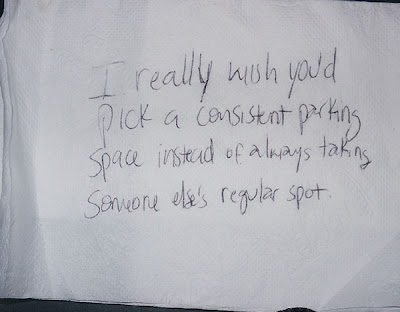 I really wish you'd
pick a consistent parking
space instead of always taking
someone else's regular spot.